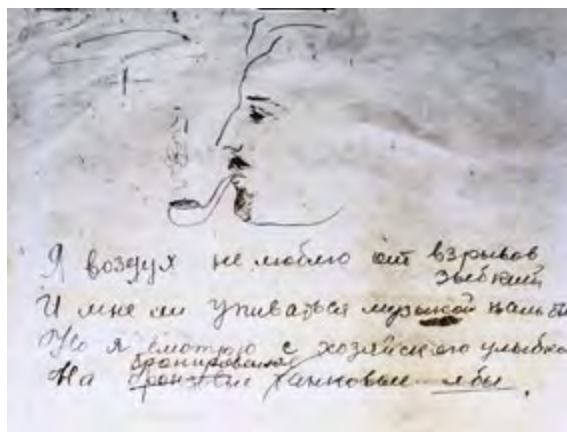 Я воздух не люблю от взрывов
зыбкий
И мне ли упиваться музыкой пальбы
Но я смотрю с хозяйскою улыбкой
бронированные
На бронзовые танковые лбы.